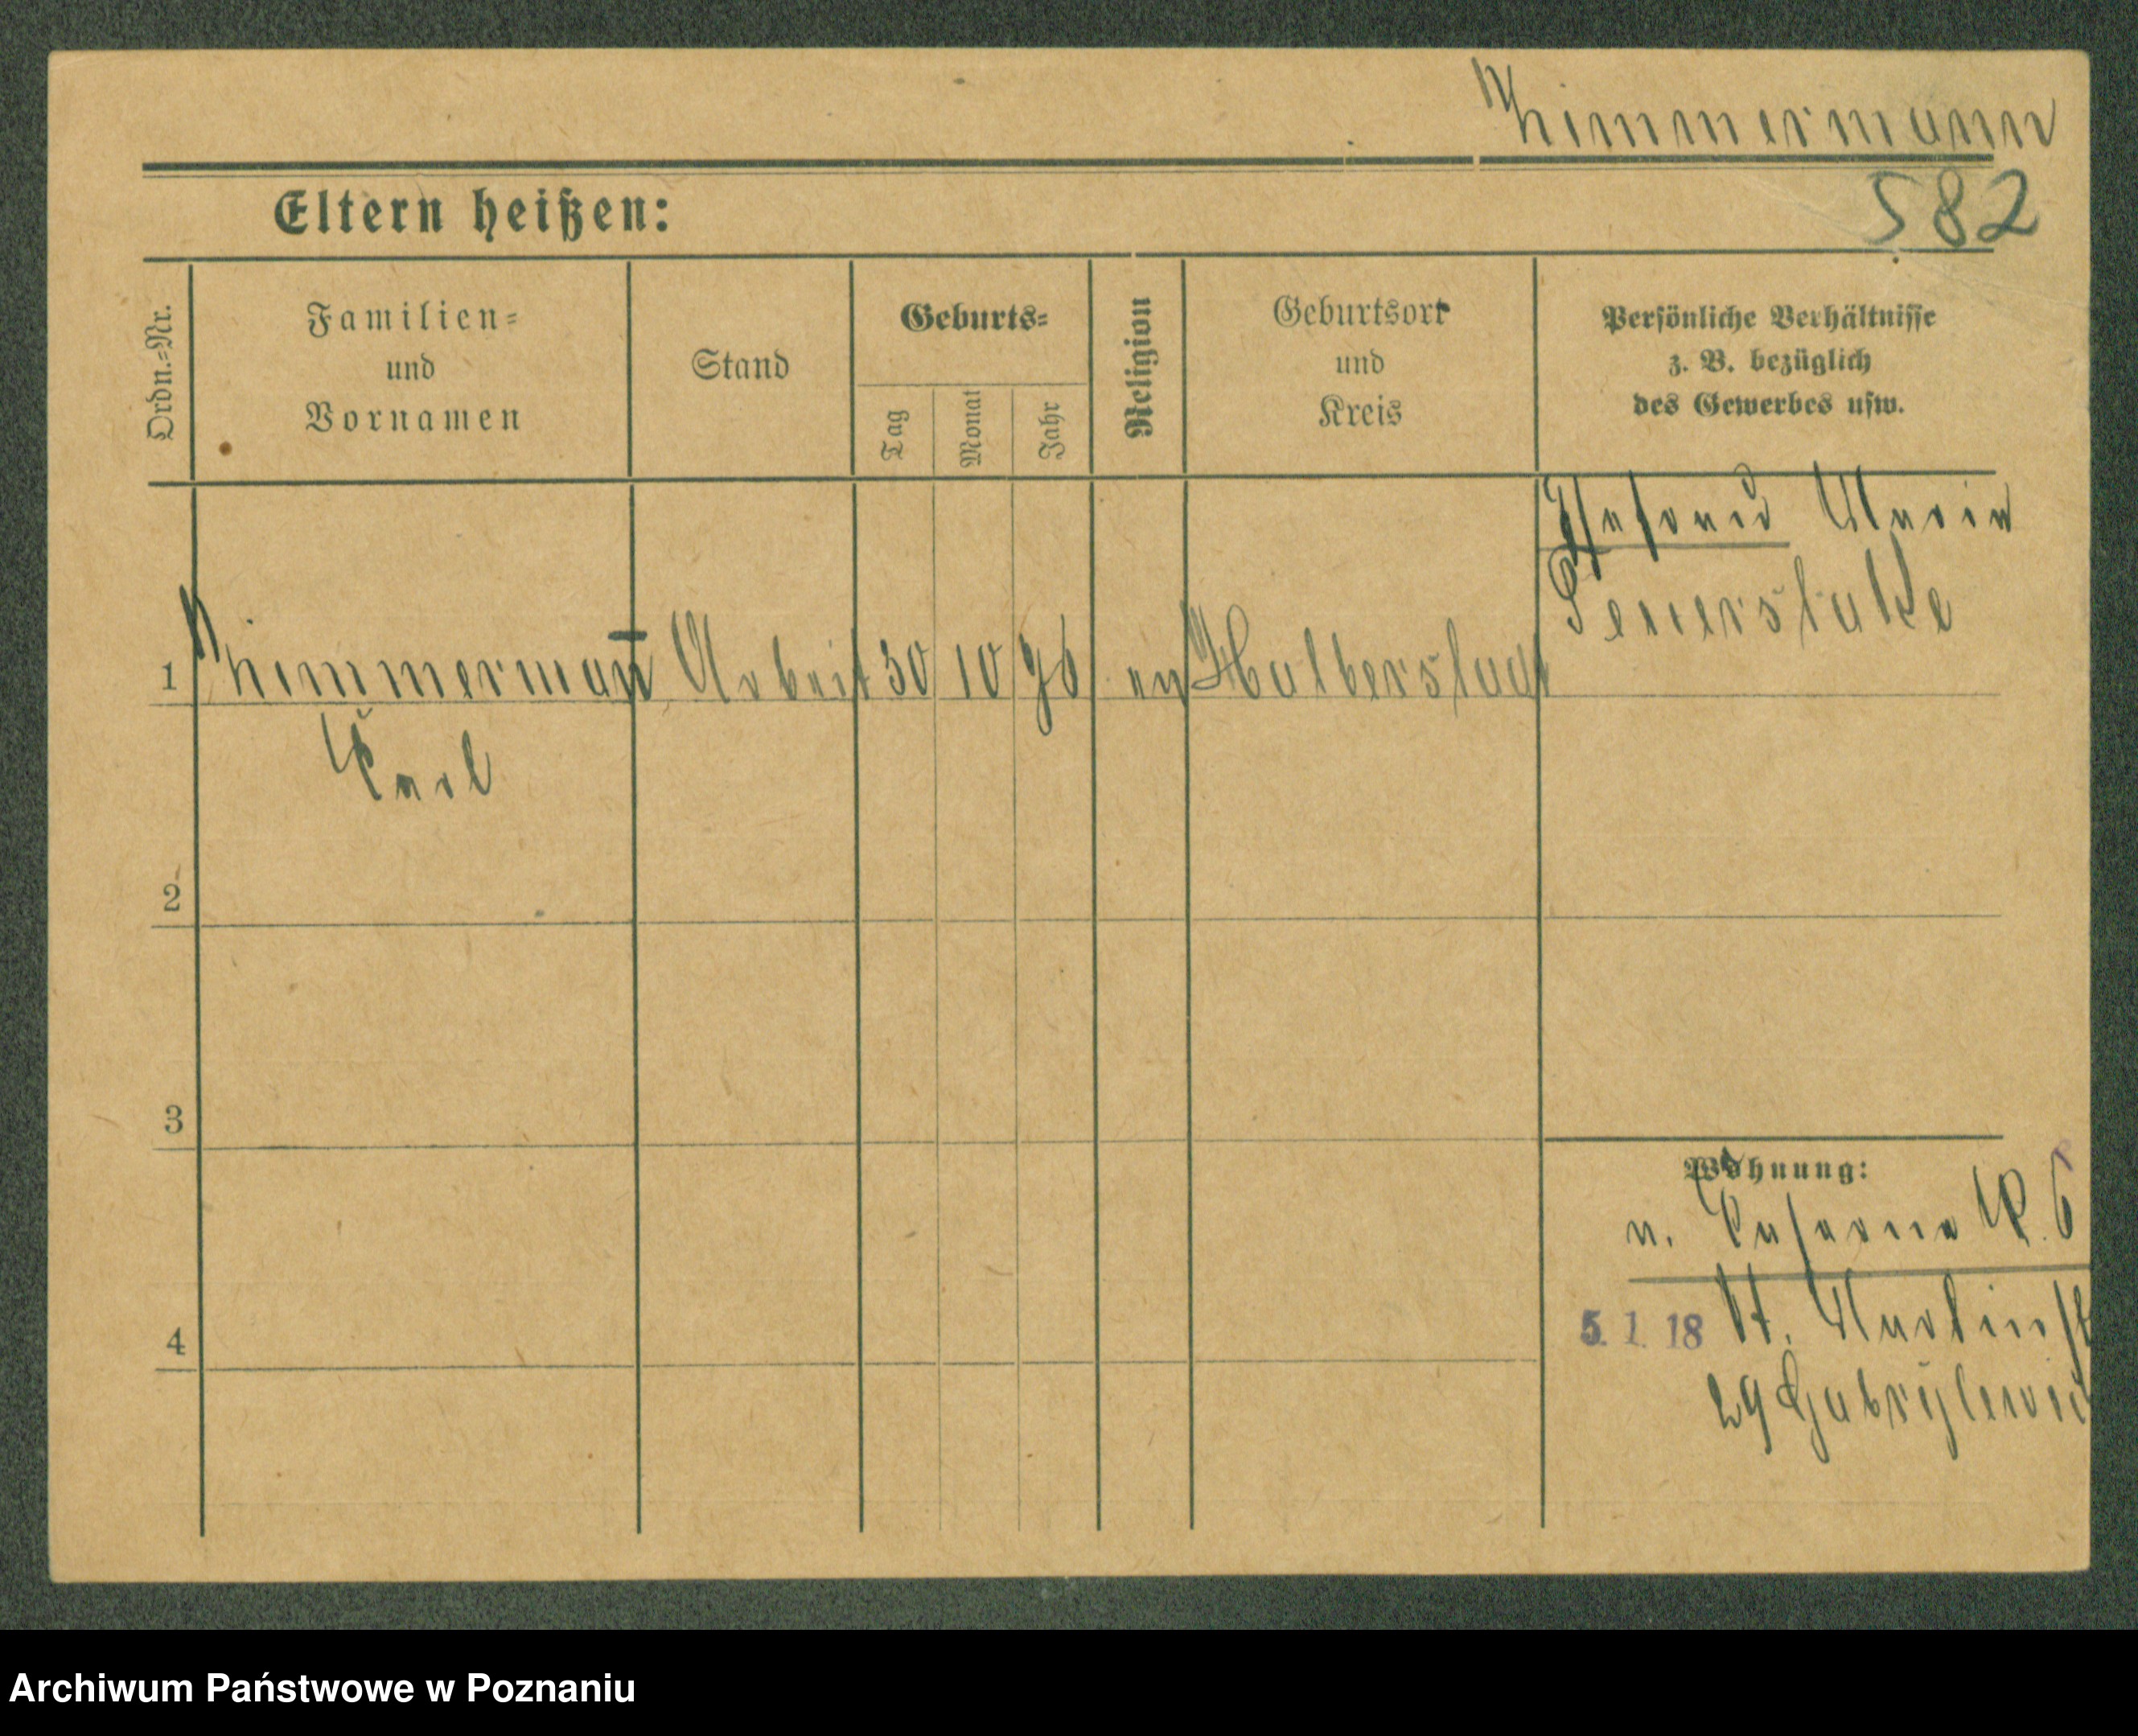 Zimmermann
582
Eltern heißen:
Ordn.-Nr.
Familien-
und
Vornamen
Stand
Geburts-
Tag
Monat
Jahr
Religion
Geburtsort
und
Kreis
Persönliche Verhältnisse
z. B. bezüglich
des Gewerbes usw.
Marie
Feuerstake
1 Zimmermañ Arbeit 30 10 96 ev Halberstadt
Carl
2
3
4
Wohnung:
n. Caserne
5. 1. 18 St. Martinst
29
Archiwum Państwowe w Poznaniu